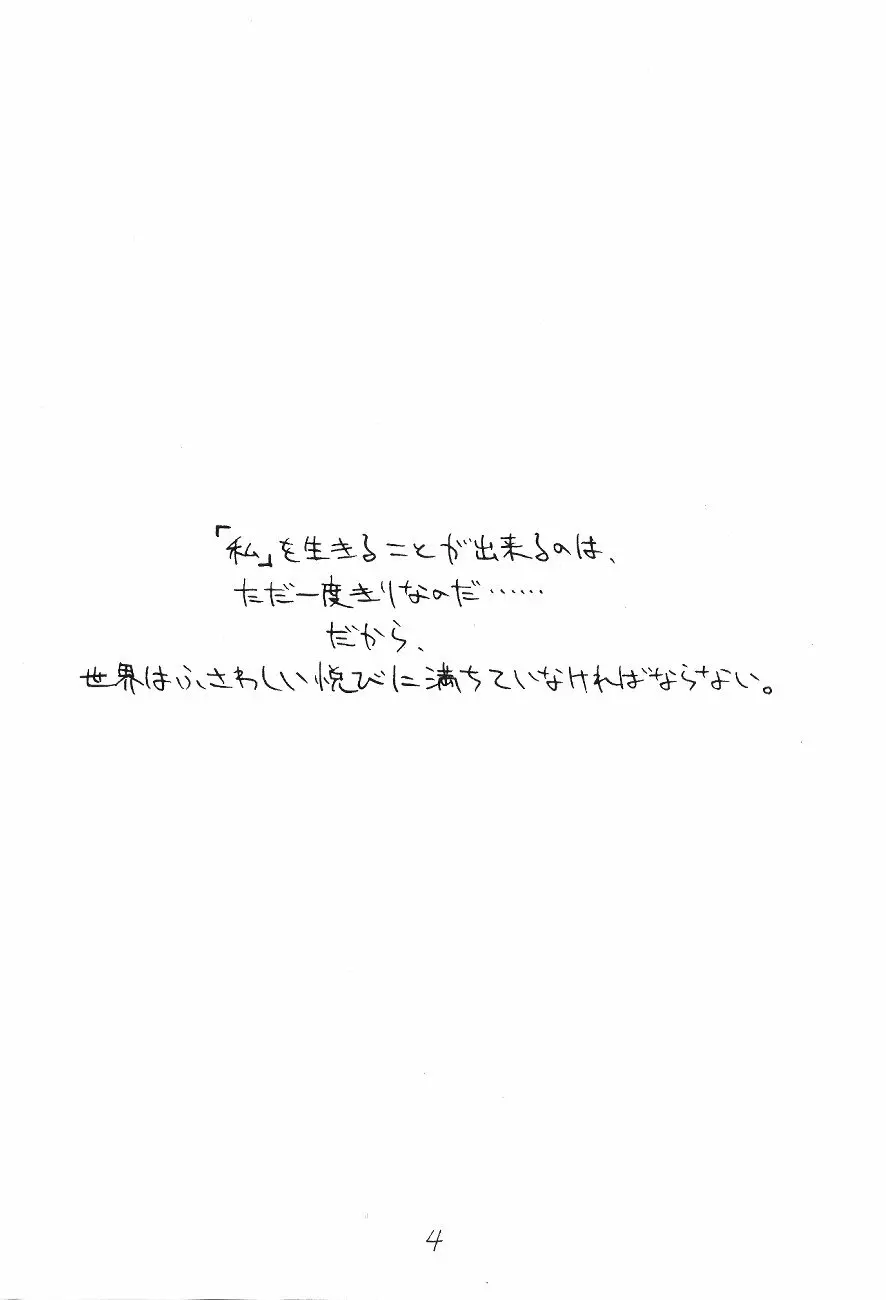 「私」を生きることが出来るのは、
ただ一度きりなのだ……
だから、
世界はふさわしい悦びに満ちていなければならない。
4